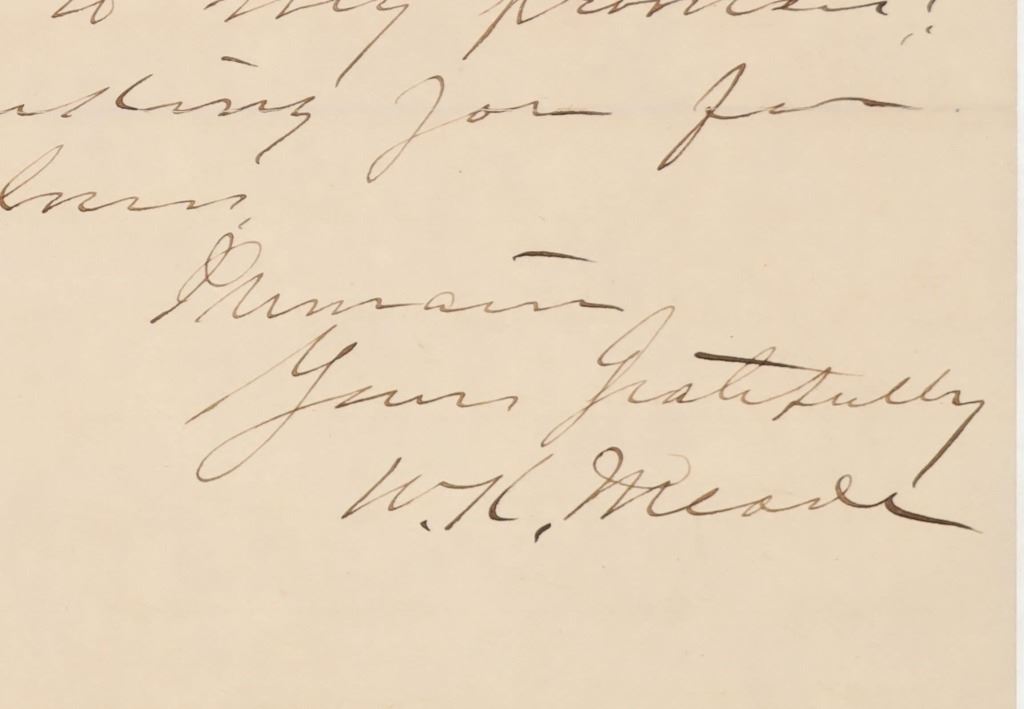 to my promise!
nking you for
Remain
Yours Gratefully
W. K. Meade